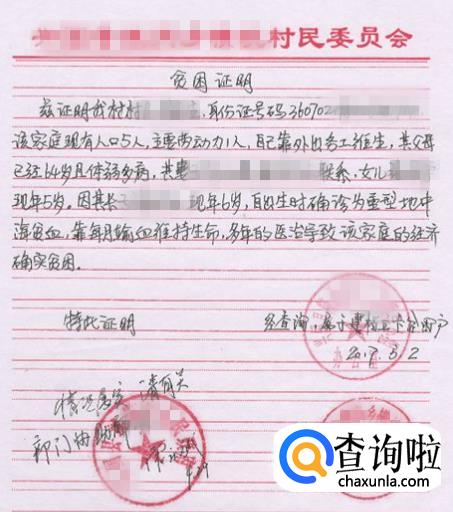 村民委员会
贫困证明
兹证明我村村, 身份证号码360702
该家庭现有人口5人, 主要劳动力1人, 自己靠外出务工维生, 其父母
已经64岁且体弱多病, 其妻 联系, 女儿
现年5岁。因其长 现年6岁, 自出生时确诊为重型地中
海贫血, 靠每月输血维持生命, 多年的医治导致该家庭的经济
确实贫困。
特此证明
经查询, 属于建档立卡贫困户
情况属实 请有关
部门协助
查询啦
chaxunla.com